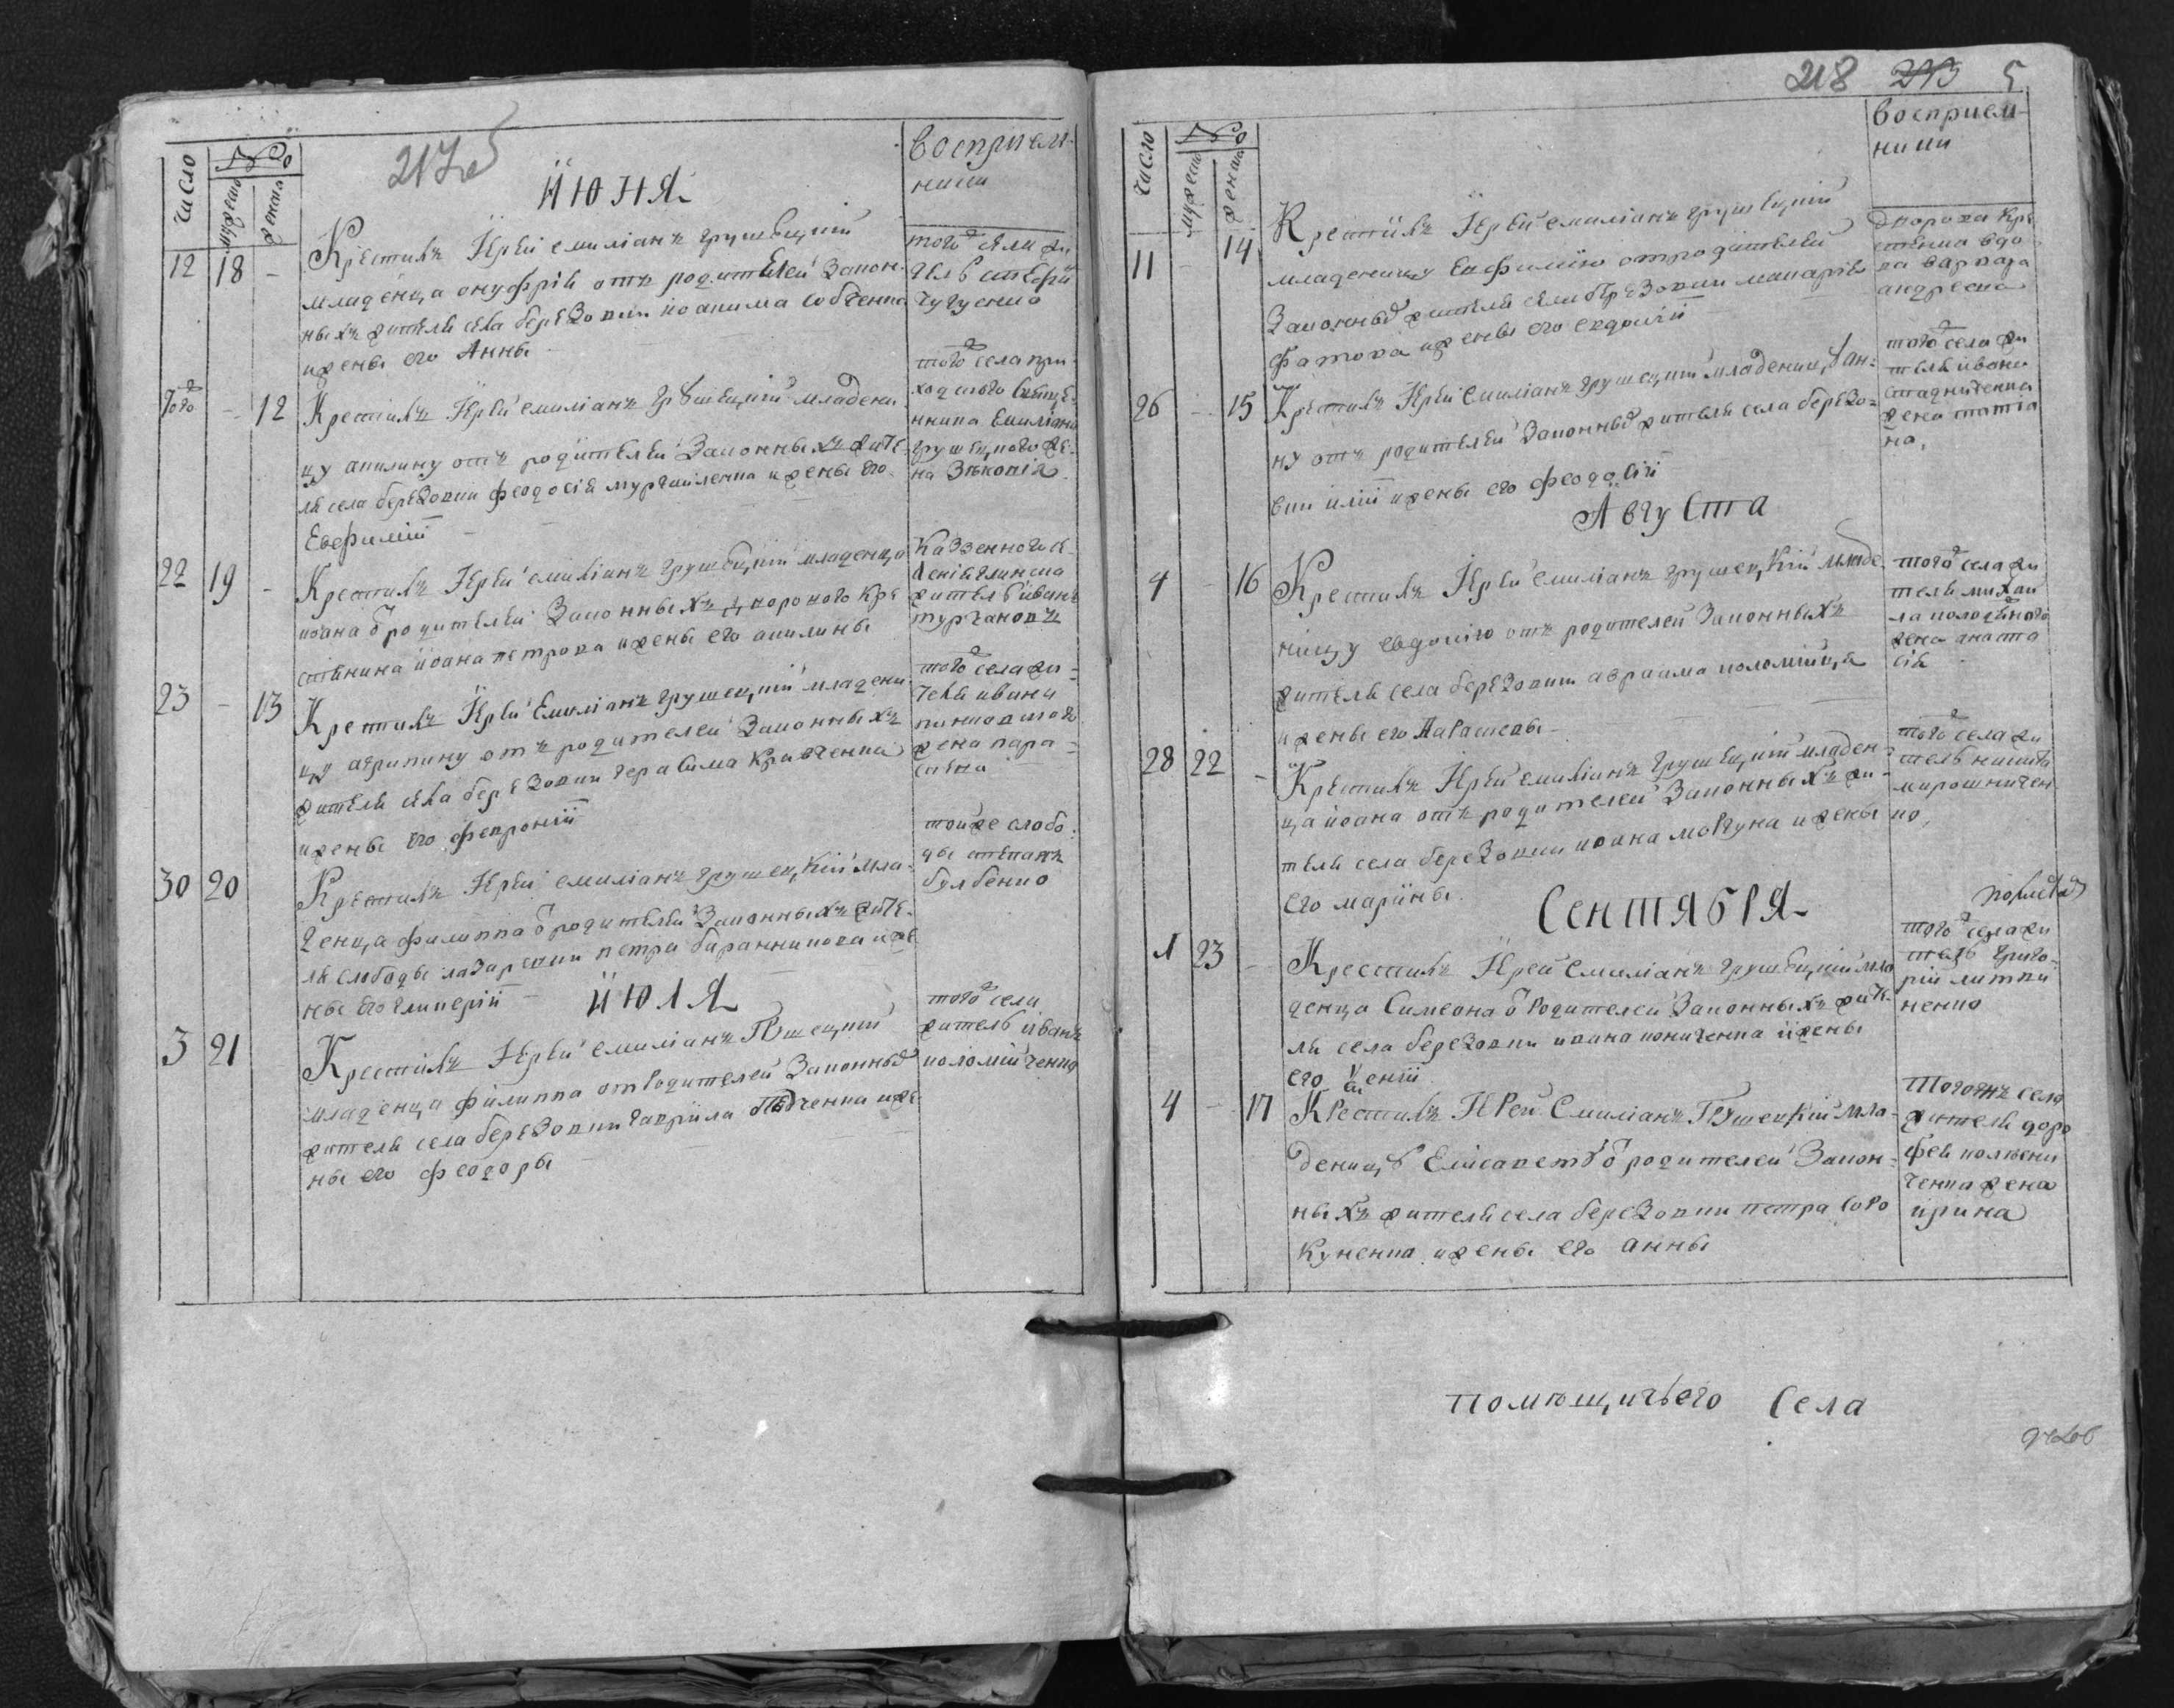 число
№
мужеск
женска
Воспрiем-
ники
Йюня
12 18 -
Крестилъ Їерей емилiанъ грушецкiй
младенца онуфрiй отъ родителей закон-
ныхъ жителя села березовки иоакима собченка
и жены его Анны
того села жи
тель стефан
чугуенко
того 12
Крестилъ Їерей емилiанъ грушецкiй младени
цу акилину отъ родителей законныхъ жите
ля села березовки феодосiя мурчиленка и жены его
Евфимiи
того села при
ходского священ
ника Емилiана
грушецкого же-
на Зѣновiя
22 19 -
Крестилъ Їерей емилiанъ грушецкiй младенца
иоана о родителей законныхъ дворового кре
стянина иоана петрова и жены его акилины
Казенного се
ленiя глинска
житель иванъ
турчановъ
23 - 13
Крестилъ Їерей Емилiанъ грушецкiй младени
цу агрипину отъ родителей законныхъ
жителя села березовки герасима Кравченка
и жены его февронiи
того села жи-
теля ивана
жена пара-
скева
30 20
Крестилъ Їерей емилiанъ грушецкiй мла-
денца филиппа о родителей законныхъ жите-
ля слободы лазаревки петра баранникова и же
ны его гликерiи
тоиже слобо
ды степанъ
булбенко
Йюля
3 21
Крестилъ Їерей емилiанъ Грушецкiй
младенца филиппа от родителей законных
жителя села березовки гаврiила и же
ны его феодоры
того села
житель иванъ
коломiйченко
218 5
число
№
мужеск
женска
Воспрiем-
ники
11 - 14
Крестилъ Їерей емилiанъ грушецкiй
младеницу Евфимию от родителей
законных жителя села березовки макарiя
фатова и жены его евдокiи
дворова кре
стянка вдо
ва варвара
андреева
26 - 15
Крестилъ Їерей Емилiанъ грушецкiй младеницу ан-
ну отъ родителей законных жителя села березо-
вки илiи и жены его феодосiи
того села жи
теля ивана
стадниченка
жена татiа
на,
Августа
4 - 16
Крестилъ Їерей Емилiанъ грушецкiй младе
ницу евдокiю отъ родителей законныхъ
жителя села березовки авраама коломiйца
и жены его Параскевы
того села жи
теля михаи
ла
жена анаста
сiя
28 22 -
Крестилъ Їерей емилiанъ грушецкiй младен
ца иоана отъ родителей законныхъ жи-
теля села березовки иоана моргуна и жены
его марiины.
того села жи
тель никита
мирошничен
ко,
Сентября
1 23 -
Крестилъ Їерей Емилiанъ грушецкiй мла
денца Симеона о родителей законныхъ жите-
ля села березовки ивана кониченка и жены
его Ксенiи
того села жи
тель григо-
рiй литви
ненко
4 - 17
Крестилъ Їерей Емилiанъ Грушецкiй мла-
деницу Елисавету о родителей закон-
ныхъ жителя села березовки петра соро
куненка и жены его анны
Тогожъ села
жителя доро
фея
ченка жена
ирина
помющичьего Села